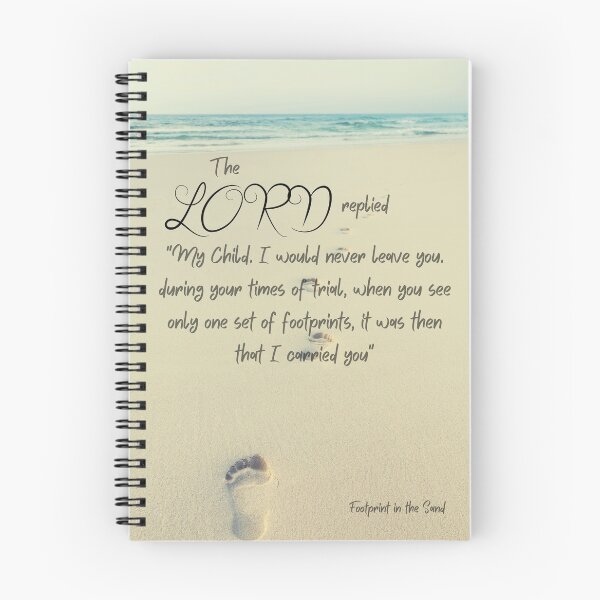 The
LORD replied
"My Child. I would never leave you.
during your times of trial, when you see
only one set of footprints, it was then
that I carried you"
Footprint in the Sand